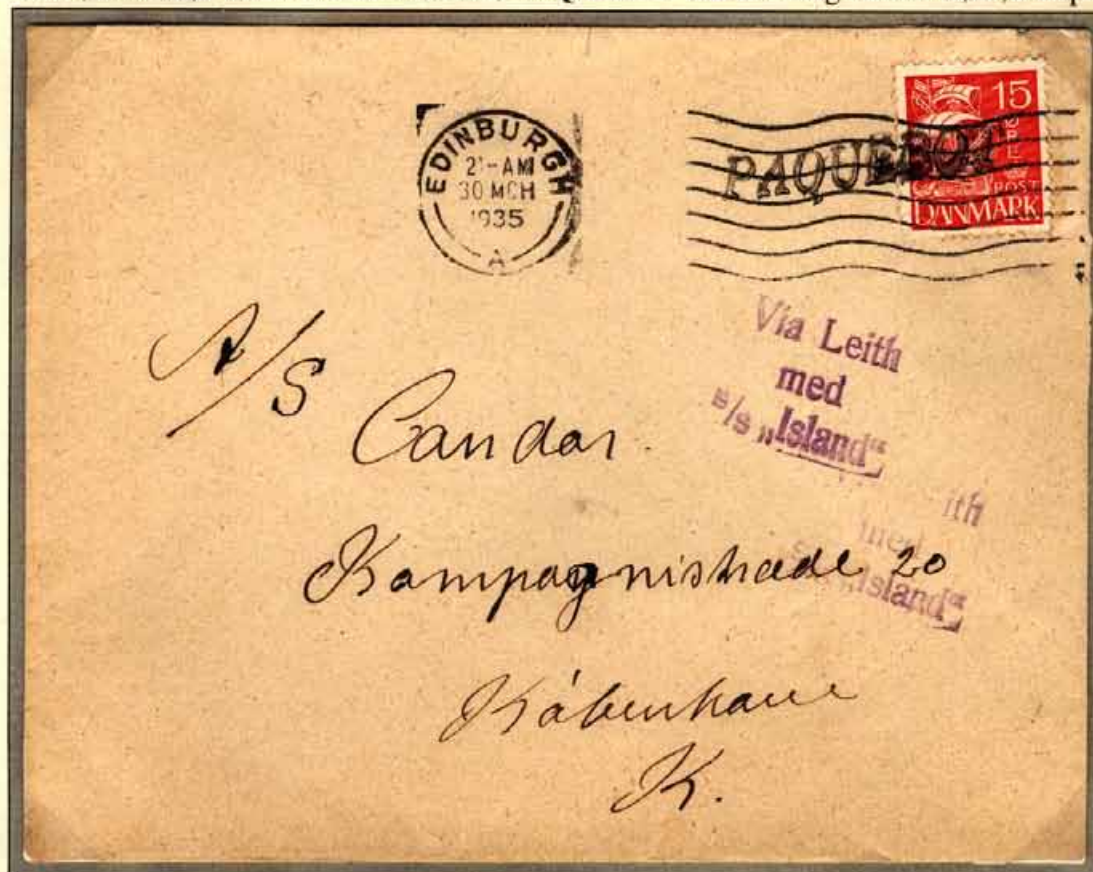 EDINBURGH
2¹-AM
30 MCH
1935
A
PAQUEBOT
15
ØRE
POST
DANMARK
Via Leith
med
s/s „Island“
ith
med
Island“
A/S
Candor.
Kompagnistræde 20
København
K.